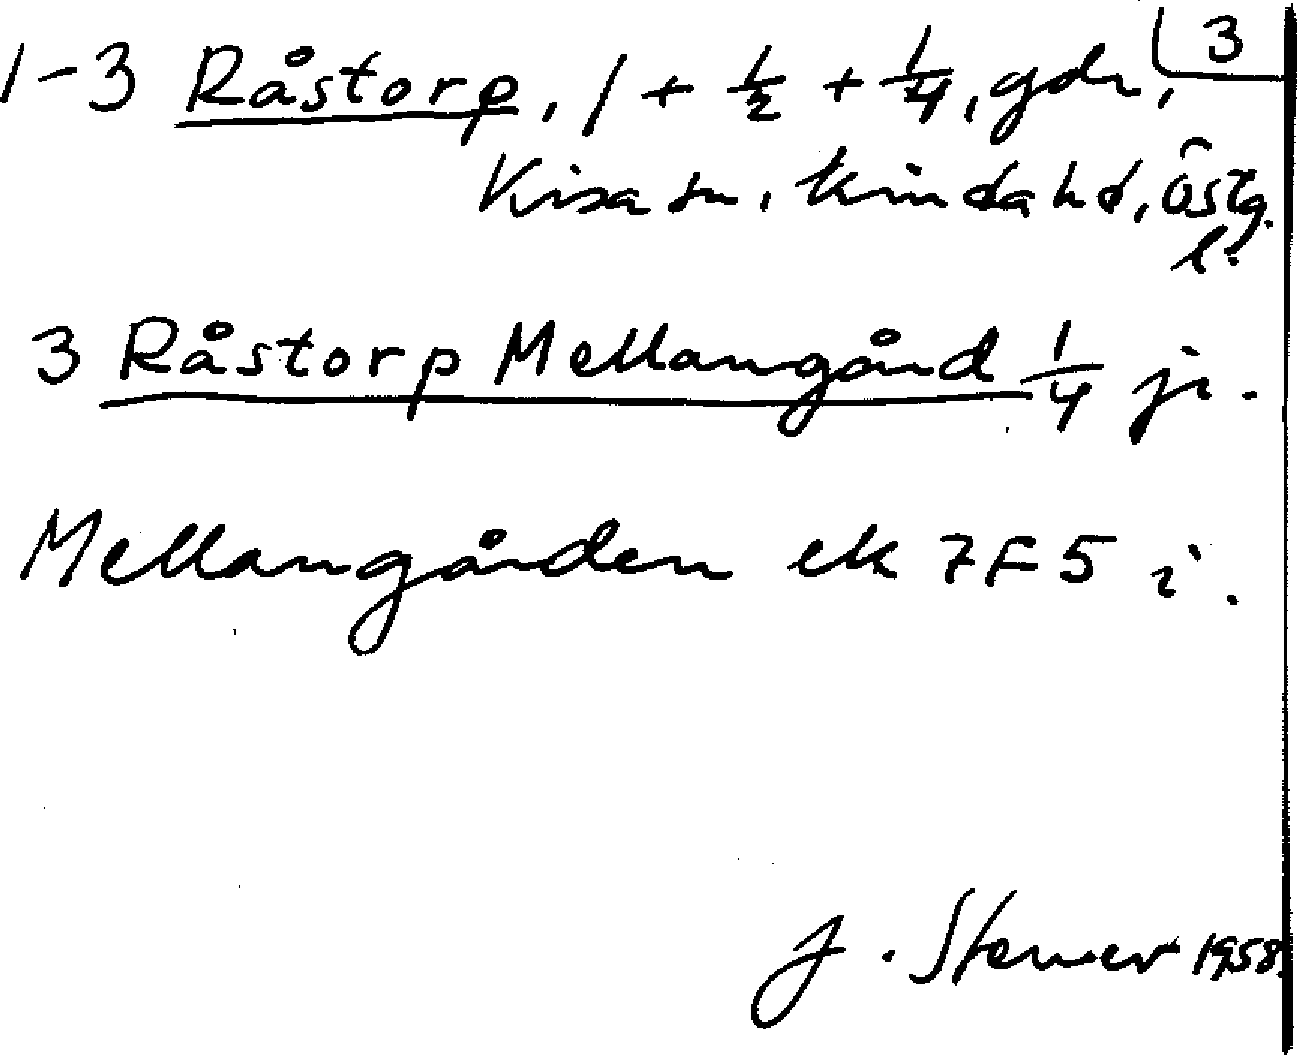 3
1-3 Råstorp, 1 + 1/2 + 1/4, gdr,
Kisa sn, Kinda hd, Östg.
l.
3 Råstorp Mellangård 1/4 ji.
Mellangården ek 7F5 i.
J. 1958